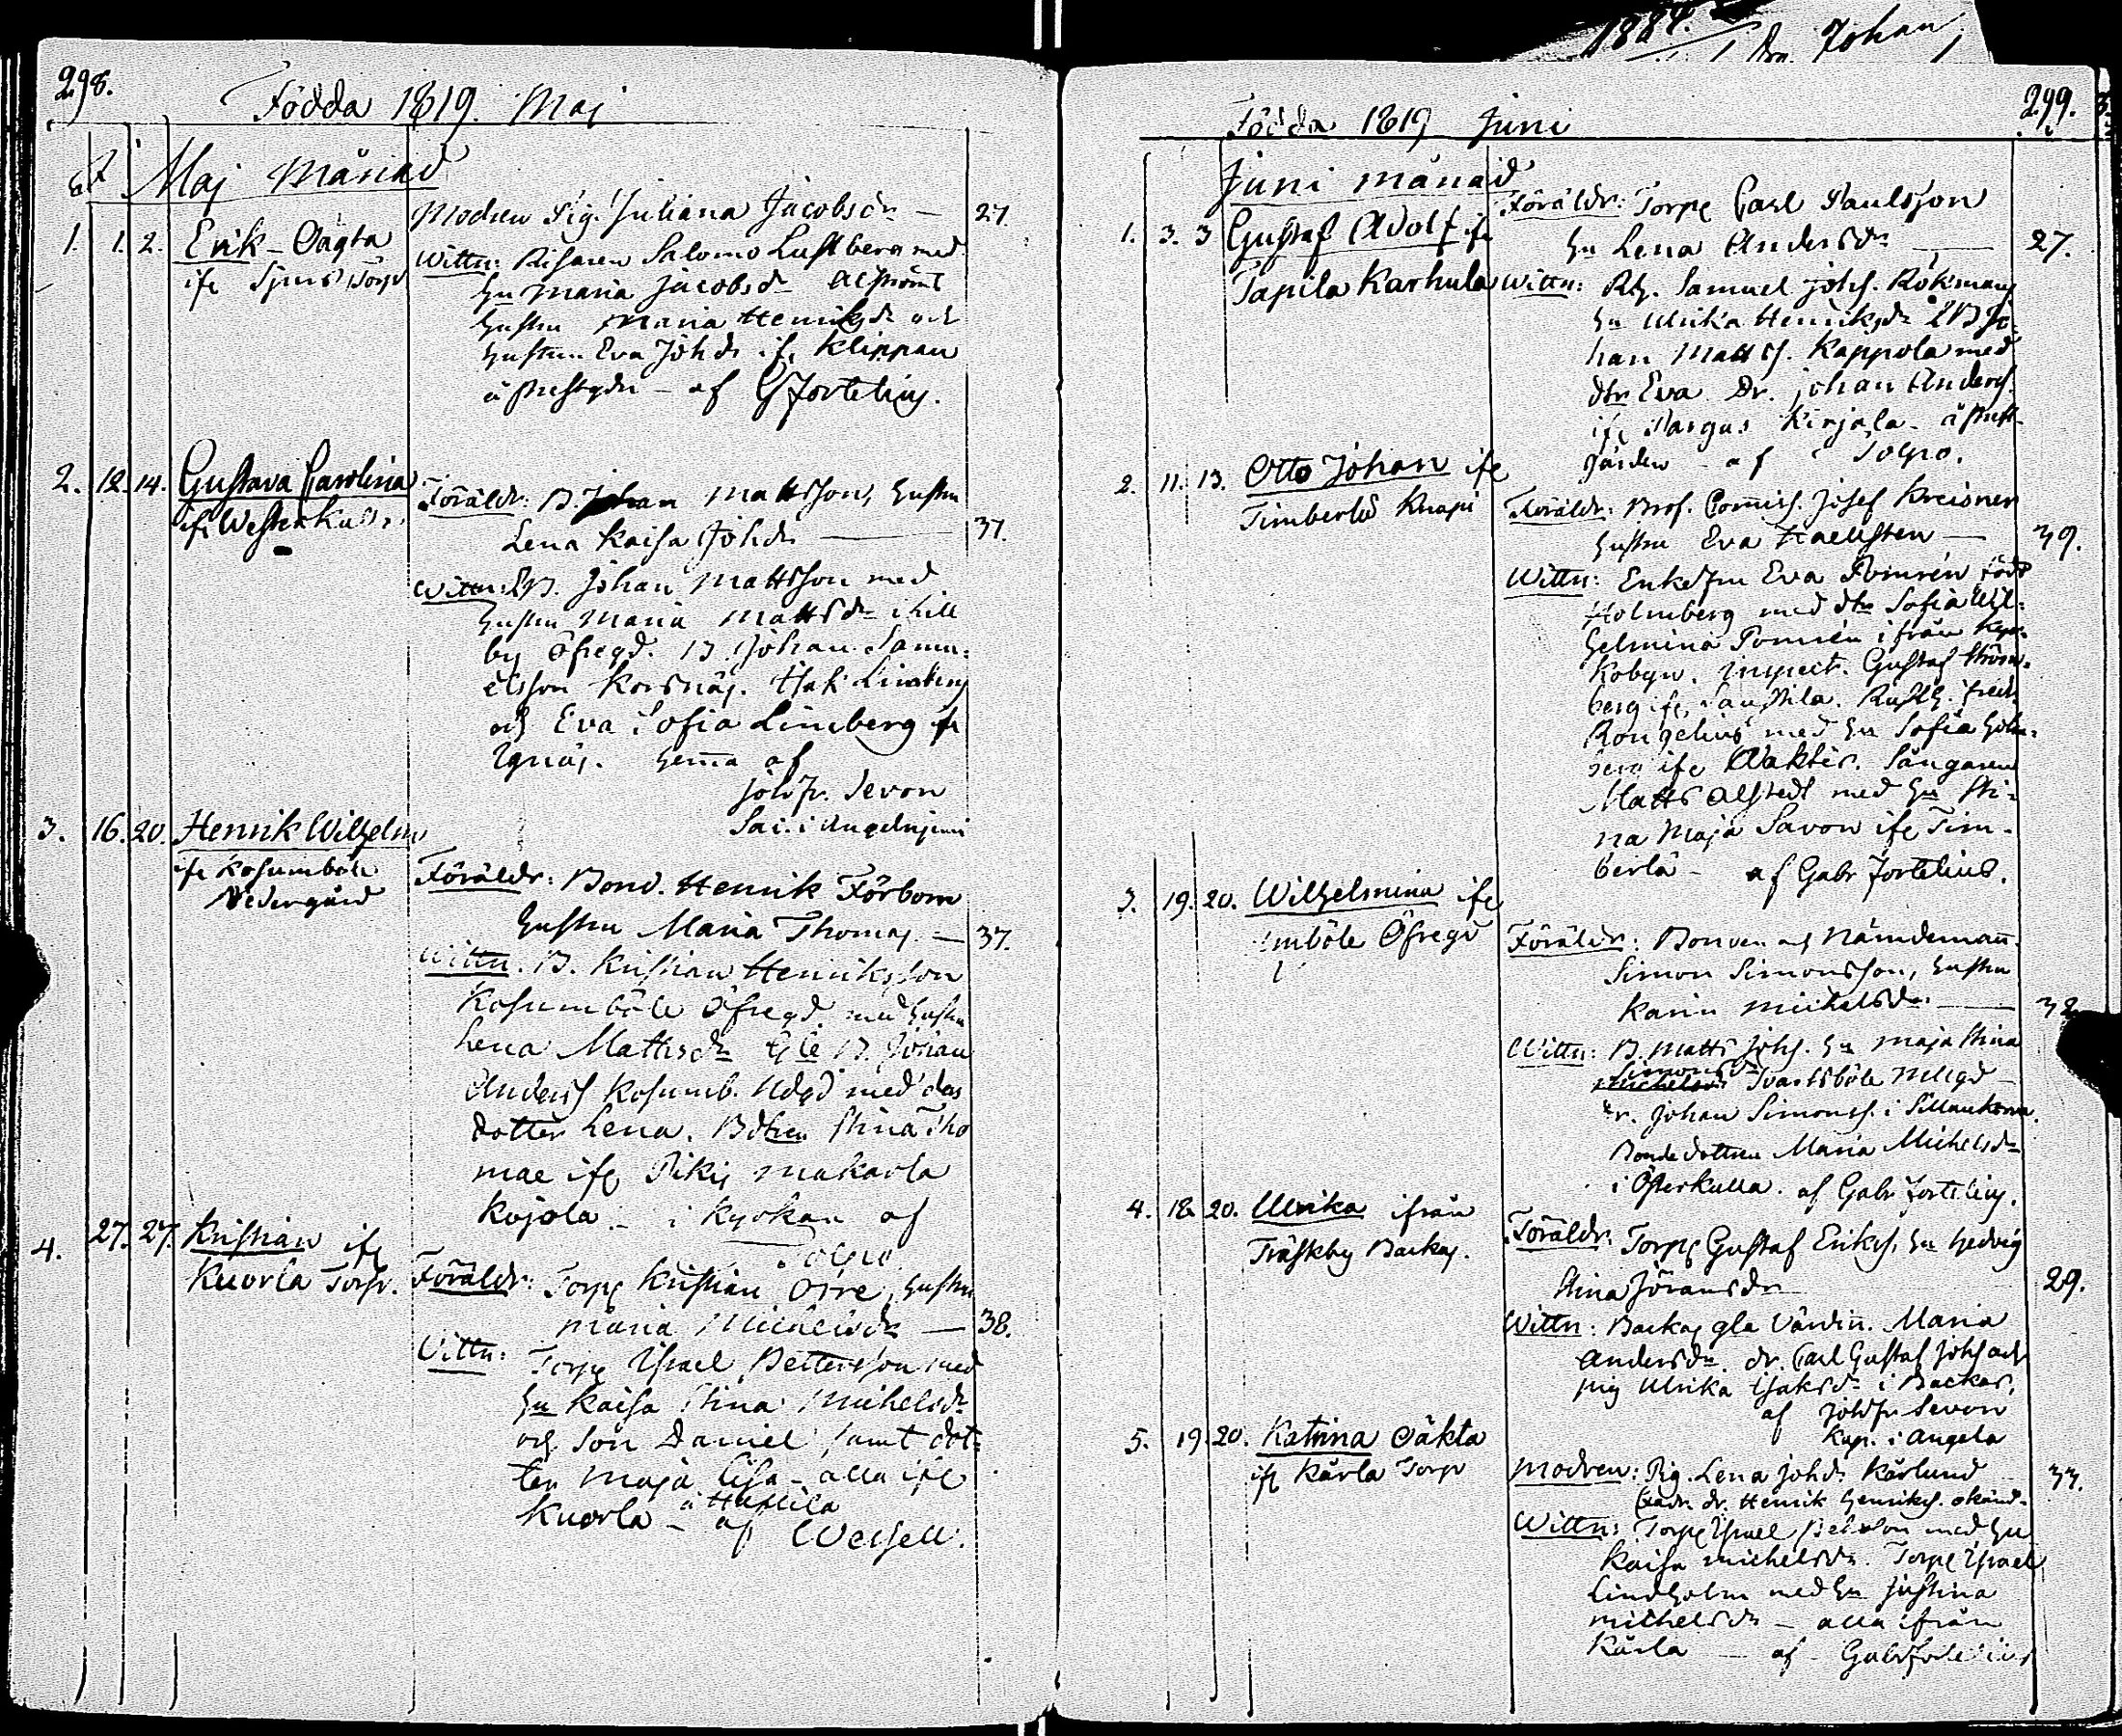 298.
Födda 1819. Maj
Maj Månad
1. 1. 2. Erik Oägta
ifr Sjurs Torp
Modren Pig. Juliana Jacobsdr — 27.
Wittn: Salomo Luftberg med
Hu Maria Jacobsdr
Hustru Maria Henriksdr och
Hustru Eva Johdr ifr Klippan
å Prestgdn - af G Fortelius.
2. 12. 14. Gustava Carolina
ifr Westerkulla
Föräldr: B. Johan Mattsson, Hustru
Lena Kaisa Johdr — 37.
Wittn: B. Johan Mattsson med
Hustru Maria Mattsdr i Lill
by Öfregd. B. Johan Samu-
elsson Korsnäs. Isak Lindberg
och Eva Sofia Lineberg ifr
hema af
Johs Fr. Sevon
Sac. i Angelniemi
3. 16. 20. Henrik Wilhelm
ifr Kosumböle
Nedergård
Föräldr: Bond. Henrik Förbom
Hustru Maria Thomas — 37.
Wittn. B. Kristian Henriksson
Kosumböle Öfregd. med Hustru
Lena Mattsdr Gle B. Johan
Anders Kosumb. Ndgd med des
dotter Lena. Bdtren Stina Tho
mae ifr Pikis Makarla
Kojola - i Kyrkan af
Tolpo
4. 27. 27. Kristian ifr
Kuorla Torp.
Föräldr: Torp Kristian Oire, Hustru
Maria Michelsdr — 38.
Wittn: Torp Israel Pettersson med
Hu Kaisa Stina Michelsdr
och son Daniel samt dot-
ter Maja Lisa - alla ifr
Kuorla -
af Wessell.
1884.
Dr. Johan
299.
Födda 1819 Juni
Juni månad
1. 3. 3 Gustaf Adolf ifr
Tapila Karhula
Föräldr: Torp Carl Paulsson
Hu Lena Andersdr — 27.
Wittn: Rh. Samuel Johs. Rökman
Hu Ulrika Henriksdr B Jo
han Matts. Kappola med
dtr Eva Dr. Johan Anders
ifr Pargas Kirjala - å Prest
gården - af Tolpo.
2. 11. 13. Otto Johan ifr
Timberlä Knapi
Föräldr: Prof. Commis. Josef Kreisner
Hustru Eva Haelsten — 39.
Wittn: Enkefru Eva Pomrén född
Holmberg med dtr Sofia Wil-
helmina Pomrén ifrån
Inspect. Gustaf Ström-
berg ifr
Rongelius med Hu Sofia Holm-
berg ifr Waktis. Sångaren
Matts Alstedt med Hu Sti-
na Maja Savon ifr Tim-
berlä - af Gabr Fortelius.
3. 19. 20. Wilhelmina ifr
mböle Öfregd
Föräldr: Bonden och Nämdeman
Simon Simonsson, Hustru
Karin Michelsdr — 32
Wittn: B. Matts Johs. Hu Maja Stina
Simonsdr
Svartsböle Nedgd
Dr. Johan Simons. i Sillankorva
Bonde dottren Maria Michelsdr
i Österkulla. af Gabr Fortelius.
4. 18. 20. Ulrika ifrån
Träskby Backas.
Föräldr: Torp Gustaf Eriks. Hu Hedvig
Stina Jöransdr — 29.
Wittn: Backas gla Värdin. Maria
Andersdr. dr. Carl Gustaf Johs och
pig Ulrika Isaksdr i Backas,
af Johs Fr Sevon
Kap. i Angela
5. 19. 20. Katrina Oäkta
ifr Kärla Torp
Modren: Pig. Lena Johdr Kärlund — 33.
Fadr. dr. Henrik Henriks. okänd
Wittn: Torp Israel Petterson med Hu
Kaisa Michelsdr. Torp Israel
Lindholm med Hu Justina
Michelsdr - alla ifrån
Kärla - af Gabr Fortelius